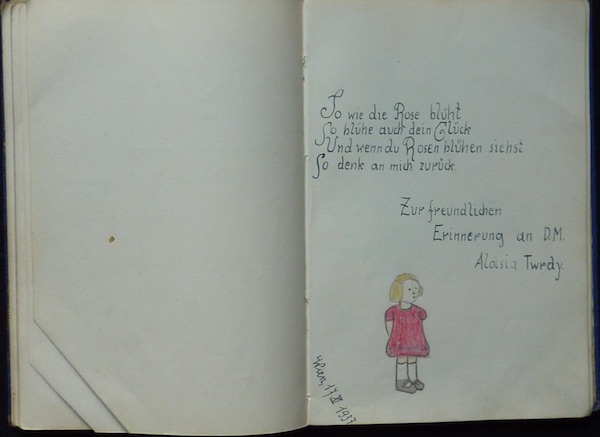 So wie die Rose blüht
So blühe auch dein Glück
Und wenn du Rosen blühen siehst
So denk an mich zurück.
Zur freundlichen
Erinnerung an D.M.
Aloisia Twrdy.
Wien, 17. XI 1937